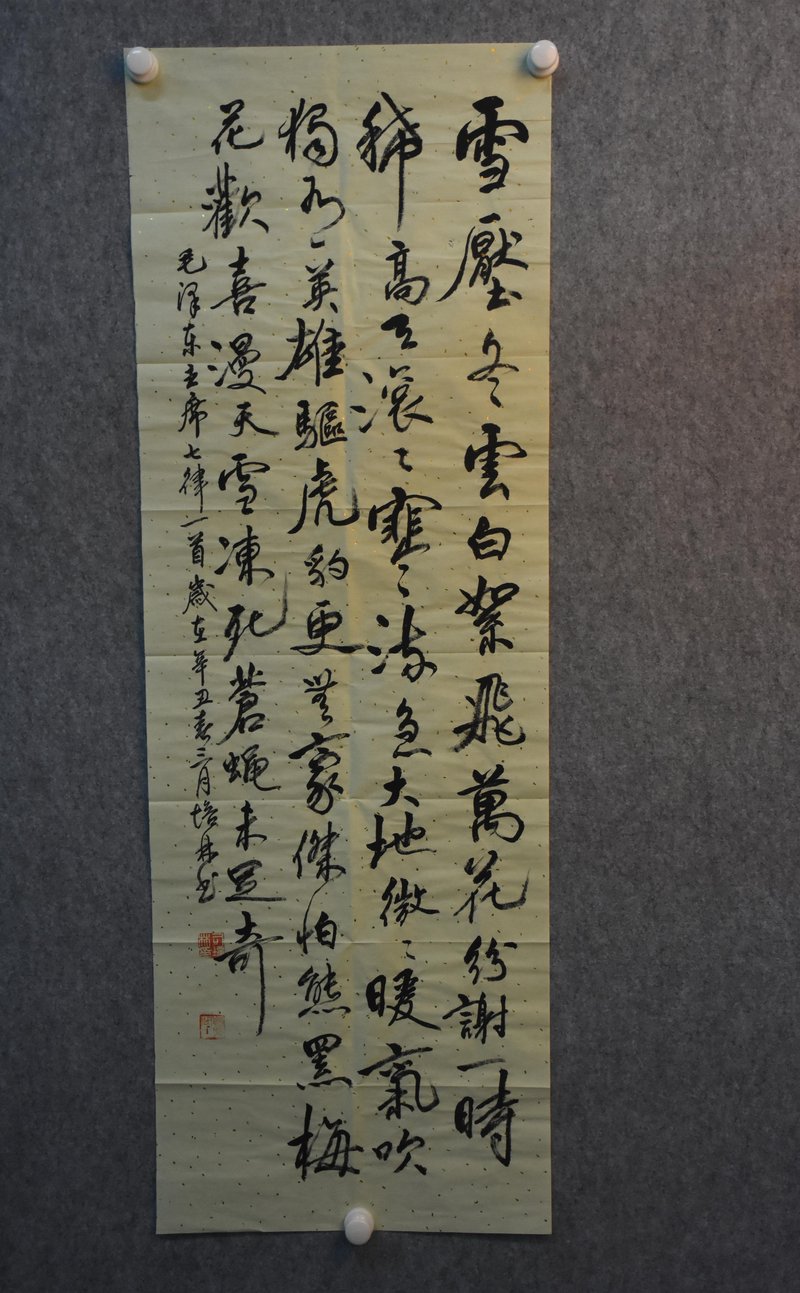 雪壓冬雲白絮飛萬花紛謝一時
稀高天滾〻寒〻流急大地微〻暖氣吹
獨有英雄驅虎豹更無豪傑怕熊羆梅
花歡喜漫天雪凍死蒼蝇未足奇
毛泽东主席七律一首歲在辛丑春三月培林书